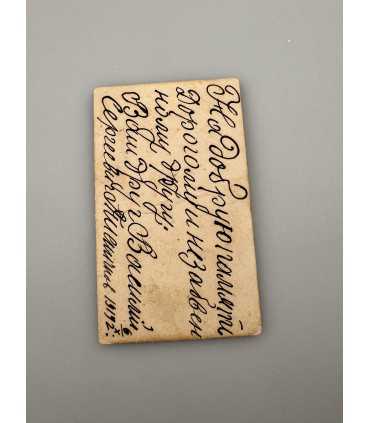 На добрую память
Дорогому и незабвен
ному Другу
Ваш друг Василий
Сергеевич